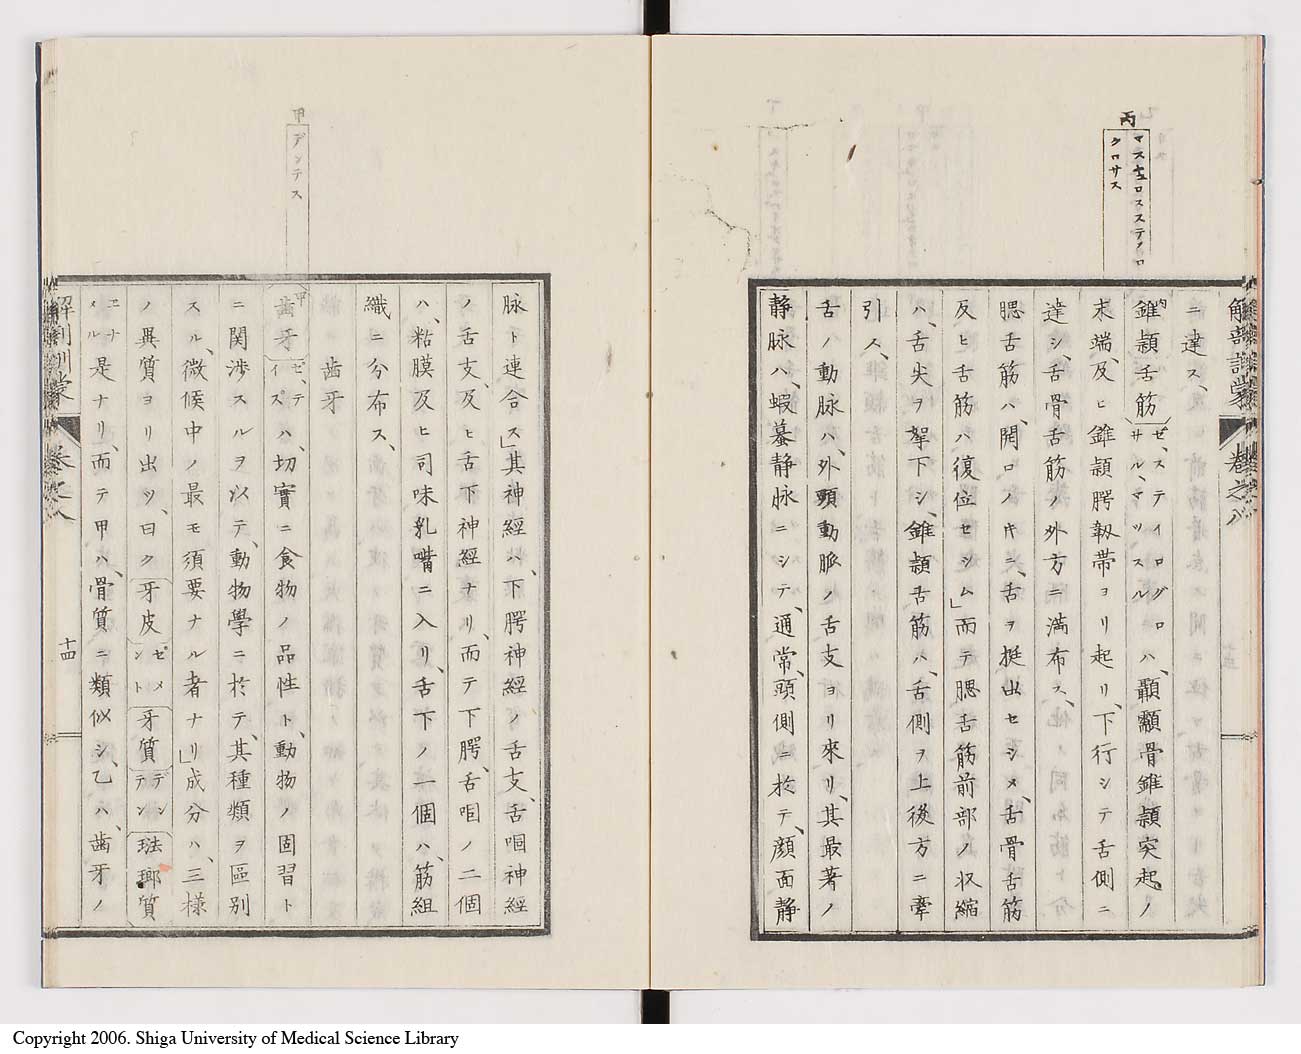 丙
マスキュロススティロ
クロサス
解剖訓蒙
巻之八
ニ達ス、
錐顈舌筋
ゼ、スティログロ
サル、マッスル
ハ、顳顬骨錐顈突起ノ
末端、及ヒ錐顈腭靱帯ヨリ起リ、下行シテ舌側ニ
達シ、舌骨舌筋ノ外方ニ満布ス、他ノ同名筋ト分
腮舌筋ハ、開口ノ片ニ、舌ヲ挺出セシメ、舌骨舌筋
反ヒ舌筋ハ復位セシム」而テ腮舌筋前部ノ収縮
ハ、舌尖ヲ挐下シ、錐顈舌筋ハ、舌側ヲ上後方ニ牽
引ス、
舌ノ動脉ハ、外頸動脈ノ舌支ヨリ來リ、其最著ノ
静脉ハ、蝦蟇静脉ニシテ、通常、頸側ニ於テ、顔面静
脉ト連合ス」其神經ハ、下腭神經ノ舌支、舌咽神經
ノ舌支、及ヒ舌下神經ナリ、而テ下腭、舌咽ノ二個
ハ、粘膜及ヒ司味乳嘴ニ入リ、舌下ノ一個ハ、筋組
織ニ分布ス、
齒牙
甲
デンテス
甲
齒牙
ゼ、テ
イス
ハ、切實ニ食物ノ品性ト、動物ノ固習ト
ニ関渉スルヲ以テ、動物學ニ於テ、其種類ヲ區別
スル、微候中ノ最モ須要ナル者ナリ」成分ハ、三様
ノ異質ヨリ出ツ、曰ク牙皮
ゼメ
ント
牙質
デン
テン
琺瑯質
エナ
メル
是ナリ、而テ甲ハ、骨質ニ類似シ、乙ハ、齒牙ノ
解剖訓蒙
巻之八
十四
Copyright 2006. Shiga University of Medical Science Library